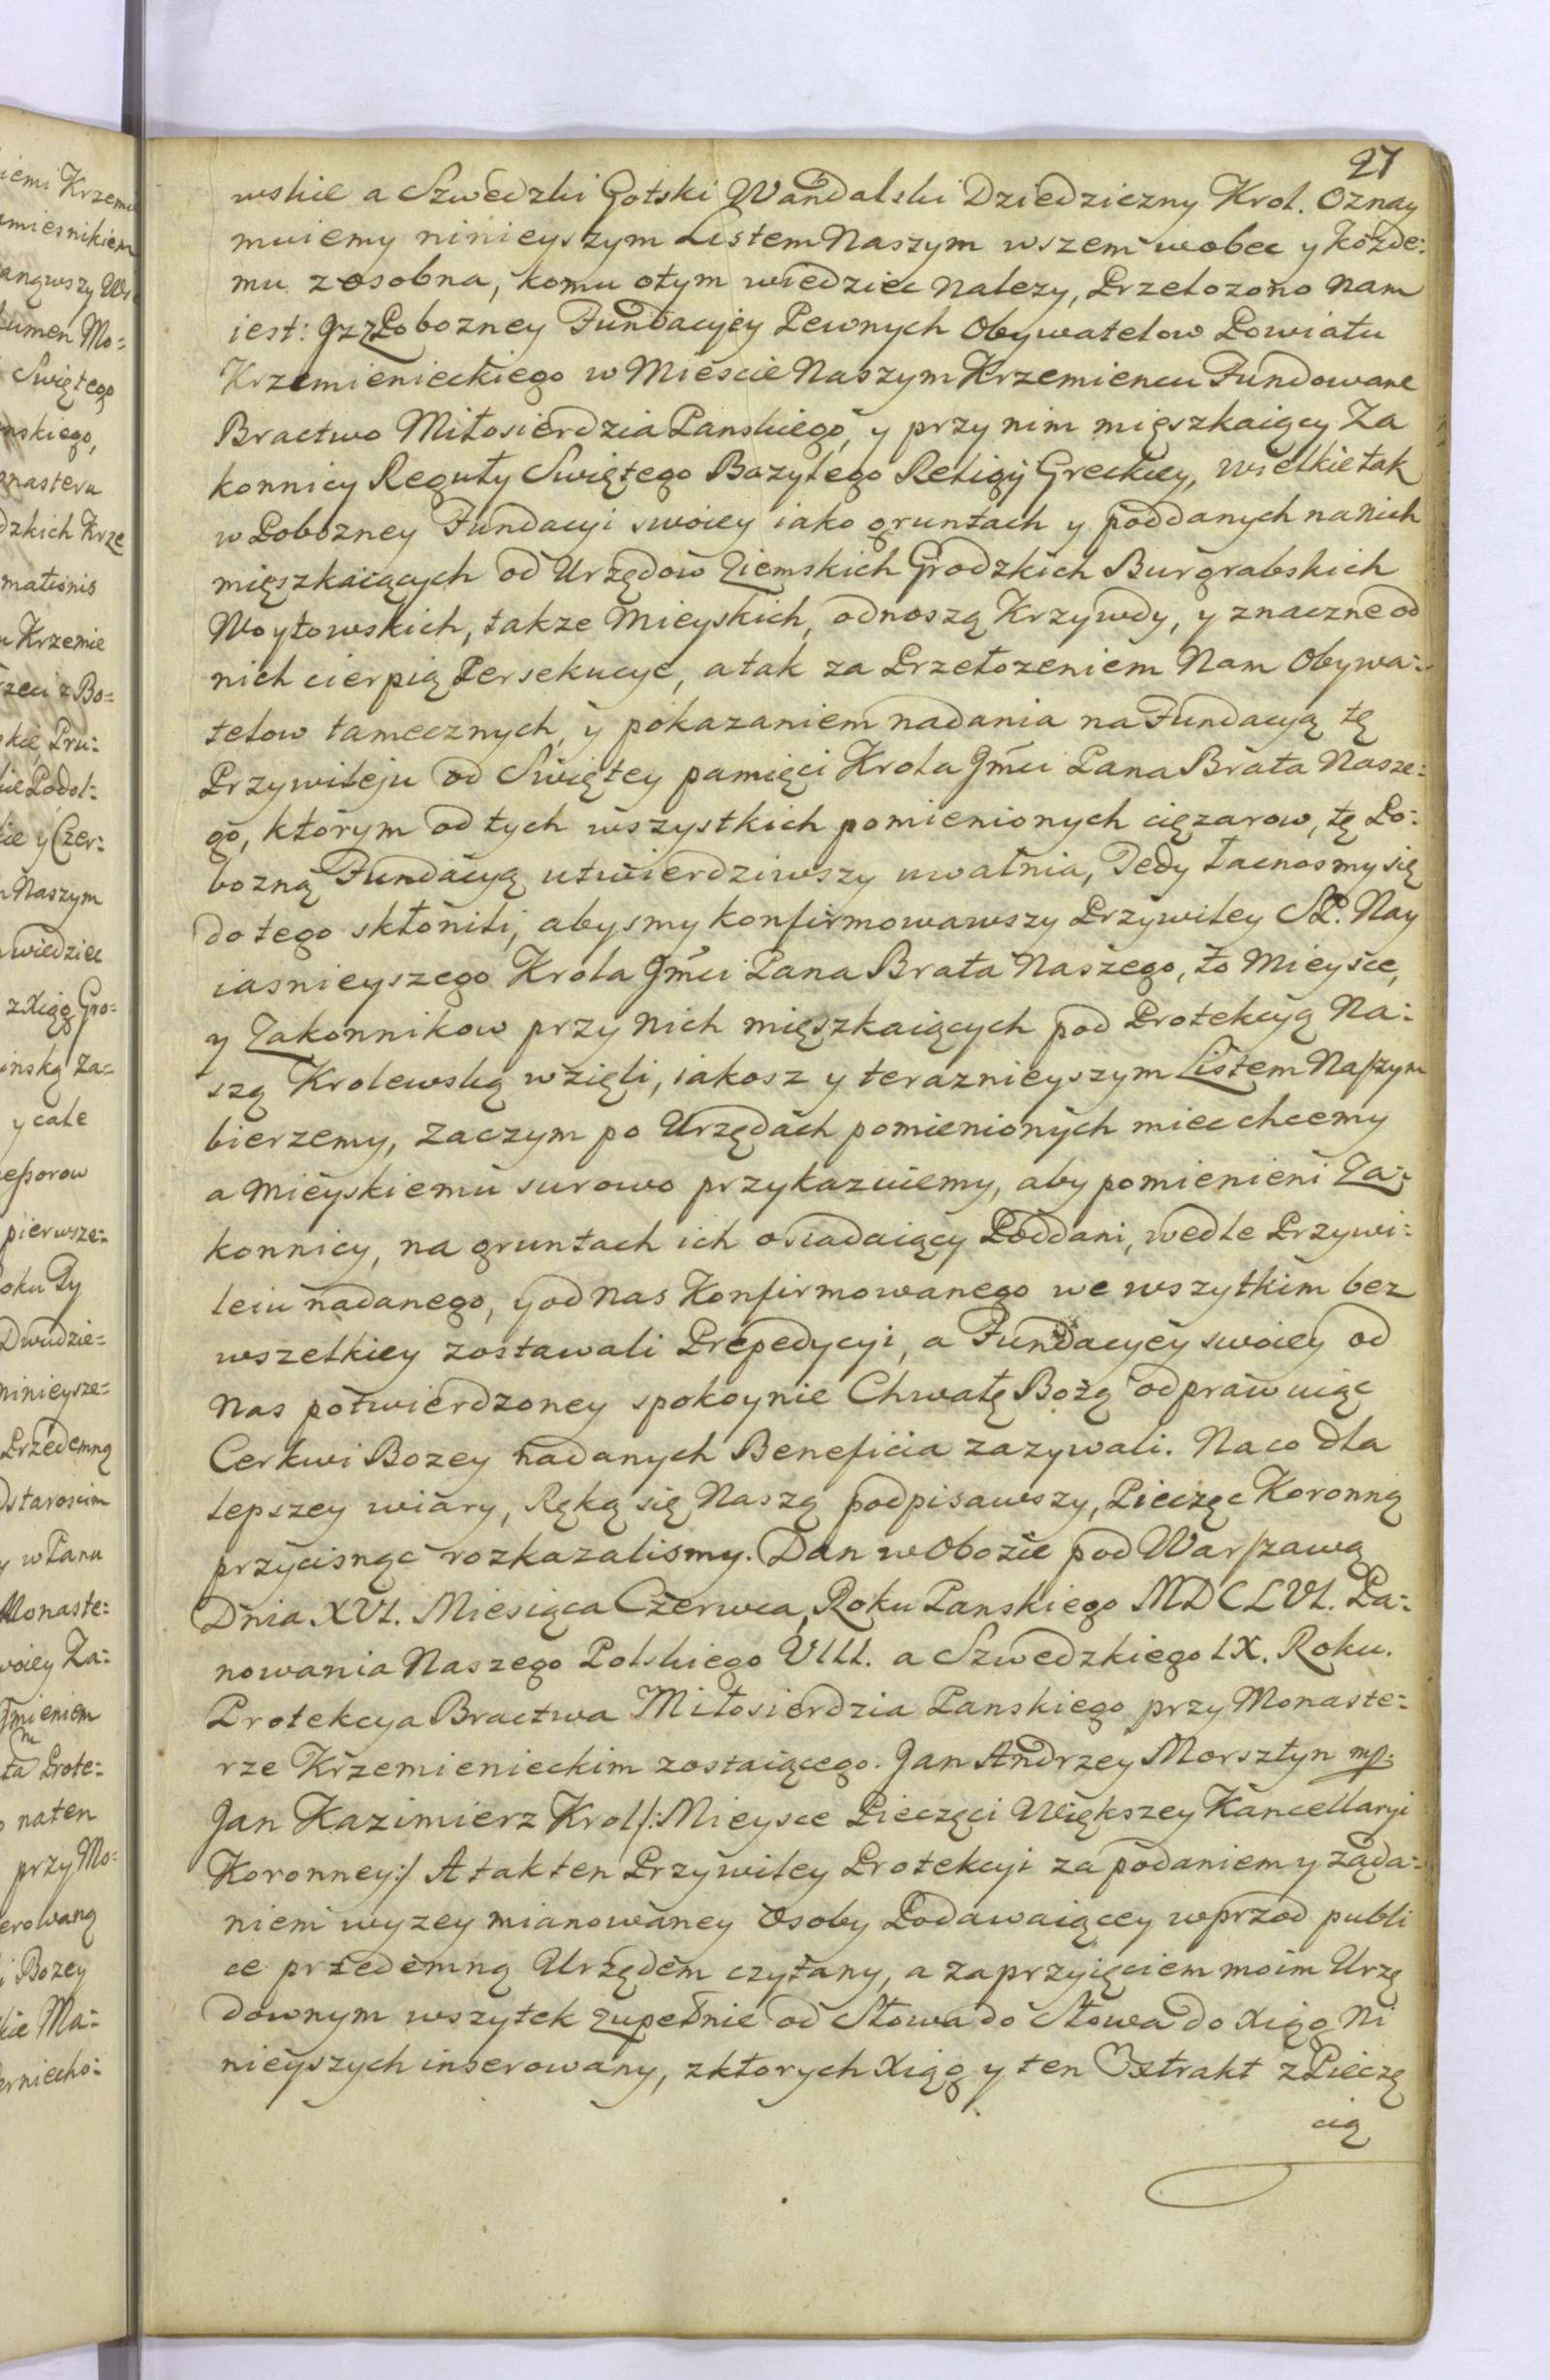 27
wskie a Szwedzki Gotski Wandalski Dziedziczny Krol. Oznay
muiemy ninieyszym Listem Naszym wszem wobec y kożde:
mu zosobna, komu otym wiedziec Nalezy, Przelozono Nam
iest: Jz z Pobozney Fundacyiey Pewnych Obywatelow Powiatu
Krzemienieckiego w Miescie Naszym Krzemiencu Fundowane
Bractwo Miłosierdzia Panskiego, y przy nim mięszkaiący Za
konnicy Reguły Swiętego Bazylego Religij Greckiey, wielkie tak
w Pobozney Fundacyi swoiey iako gruntach y poddanych na nich
mięszkaiących od Urzędow Ziemskich Grodzkich Burgrabskich
Woytowskich, takze Mieyskich, odnoszą Krzywdy, y znaczne od
nich cierpią Persekucye, atak za Przełozeniem Nam Obywa:
telow tamecznych, y pokazaniem nadania na Fundacyą tę
Przywileju od Swiętey pamięci Krola Jm̃ci Pana Brata Nasze:
go, ktorym od tych wszystkich pomienionych cięzarow, tę Po:
bozną Fundacyą utwierdziwszy uwalnia, Tedy łacnosmy się
do tego skłonili, abysmy konfirmowawszy Przywiley SP. Nay
iasnieyszego Krola Jm̃ci Pana Brata Naszego, to Mieysce,
y Zakonnikow przy Nich mięszkaiących pod Protekcyą Na:
szą Krolewską wzięli, iakosz y teraznieyszym Listem Naszym
bierzemy, Zaczym po Urzędach pomienionych miec chcemy
a Mieyskiemu surowo przykazuiemy, aby pomienieni Za:
konnicy, na gruntach ich osiadaiący Poddani, wedle Przywi:
leiu nadanego, y od nas Konfirmowanego we wszytkim bez
wszelkiey zostawali Prepedycyi, a Fundacyey swoiey od
Nas potwierdzoney spokoynie Chwałę Bożą odprawuiąc
Cerkwi Bozey nadanych Beneficia zazywali. Na co dla
lepszey wiary, Ręką się Naszą podpisawszy, Pieczęc Koronną
przycisnąc rozkazalismy. Dan w Obozie pod Warszawą
Dnia XVI. Miesiąca Czerwca, Roku Panskiego MDCLVI. Pa:
nowania Naszego Polskiego VIII. a Szwedzkiego IX. Roku.
Protekcya Bractwa Miłosierdzia Panskiego przy Monaste:
rze Krzemienieckim zostaiącego. Jan Andrzey Morsztyn mp.
Jan Kazimierz Krol /: Mieysce Pieczęci Większey Kancellaryi
Koronney :/ A tak ten Przywiley Protekcyi za podaniem y żąda:
niem wyzey mianowaney Osoby Podawaiącey wprzod publi
ce przedemną Urzędem czytany, a za przyięciem moim Urzę
downym wszytek zupełnie od Słowa do Słowa do Xiąg Ni
nieyszych inserowany, z ktorych Xiąg y ten Extrakt z Pieczę
cią